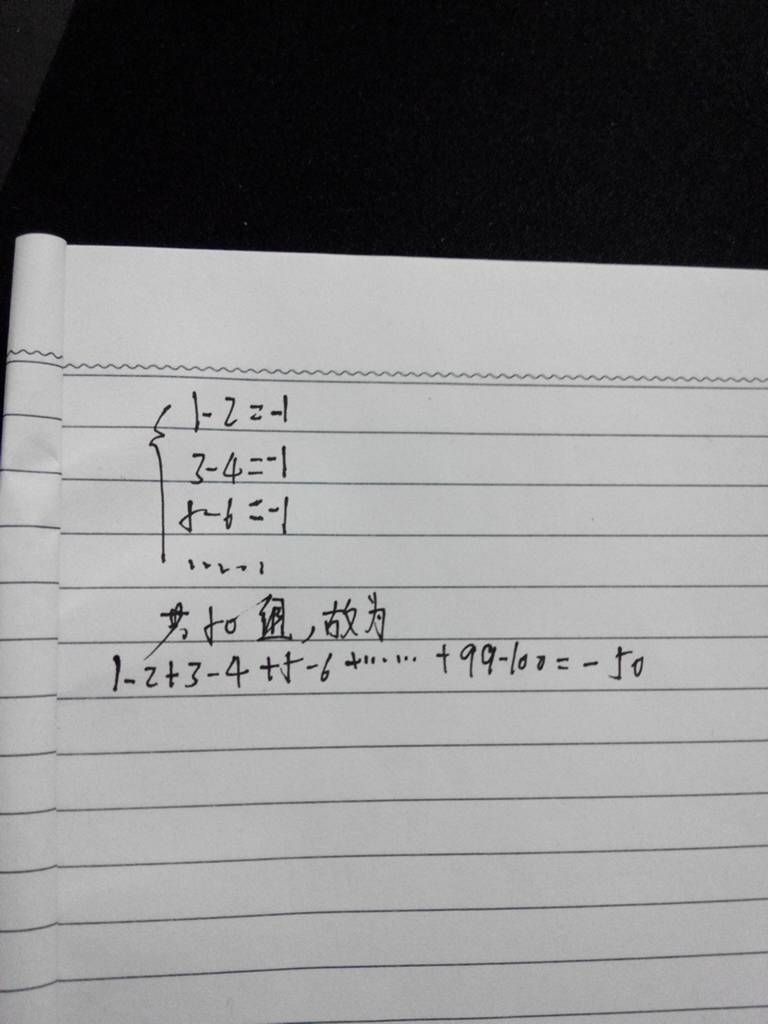 1-2=-1
3-4=-1
5-6=-1
……
共50组,故为
1-2+3-4+5-6+……+99-100=-50